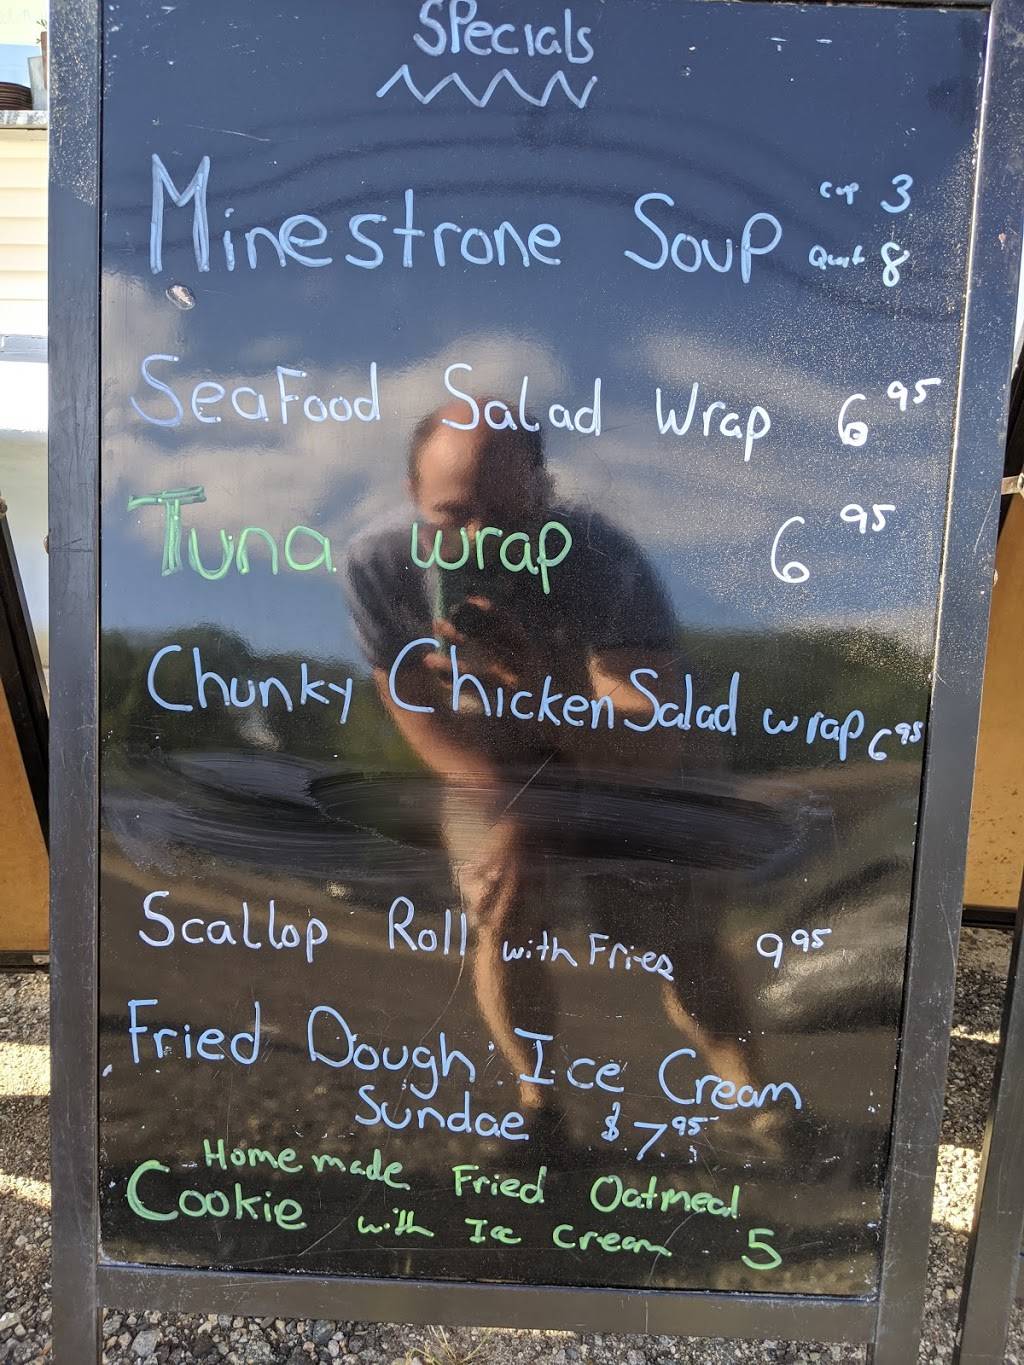 Specials
Minestrone Soup Cup 3
Quart 8
Seafood Salad Wrap 6 95
Tuna wrap 6 95
Chunky Chicken Salad wrap 6 95
Scallop Roll with Fries 9 95
Fried Dough Ice Cream
Sundae $7.95
Homemade Fried Oatmeal
Cookie with Ice Cream 5